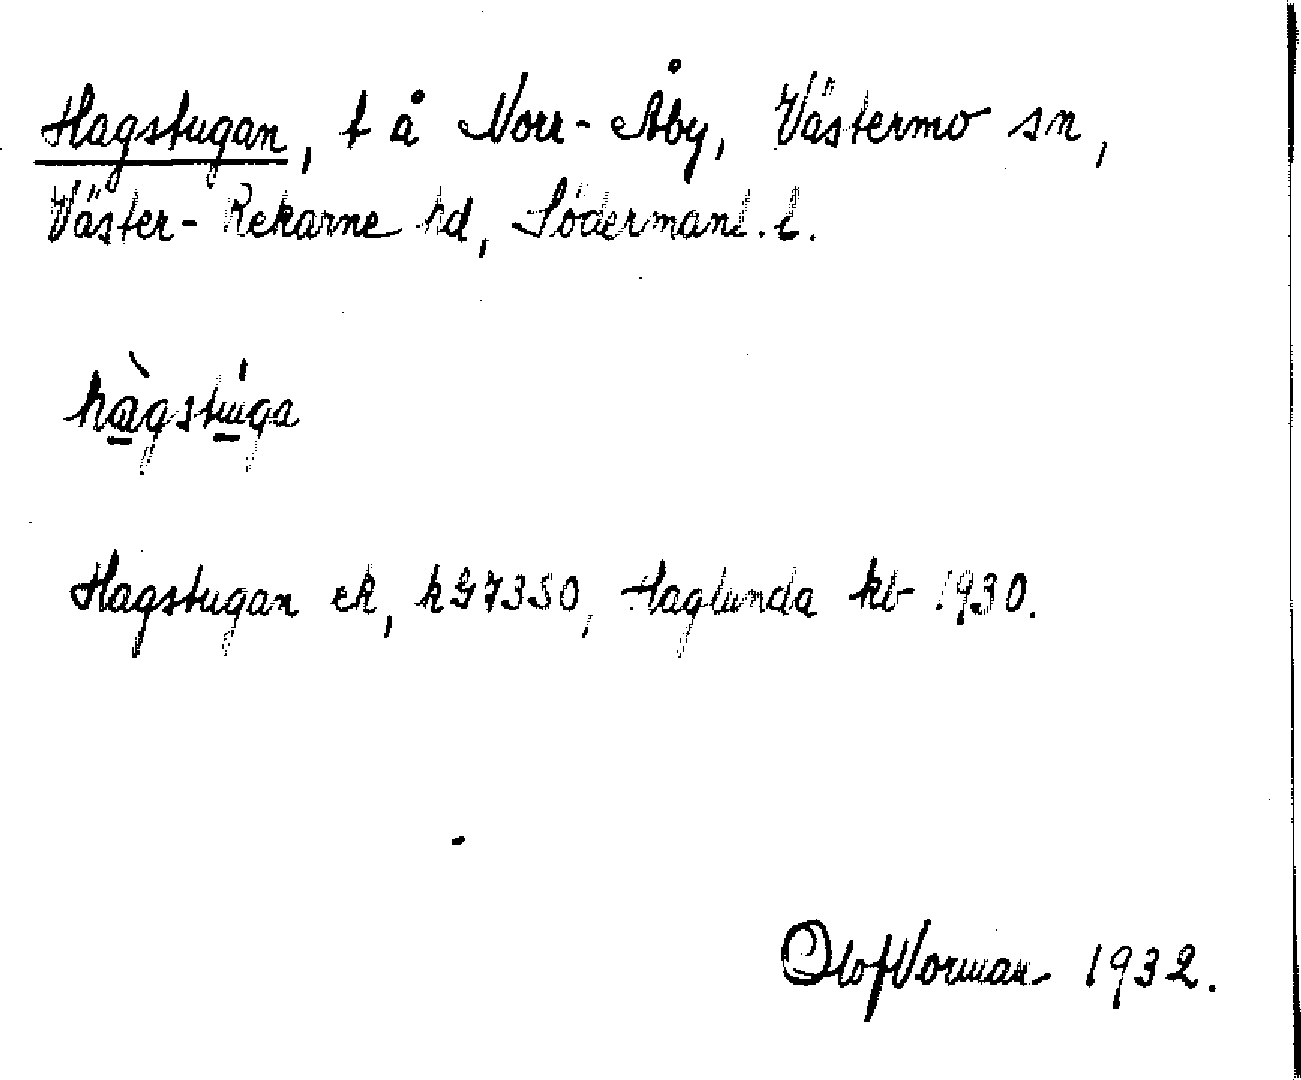 Hagstugan, t å Norr-Åby, Västermo sn,
Väster-Rekarne hd, Södermanl. l.
hàgstúga
Hagstugan ek, kG7350, Haglunda kb 1930.
Olof Norman 1932.